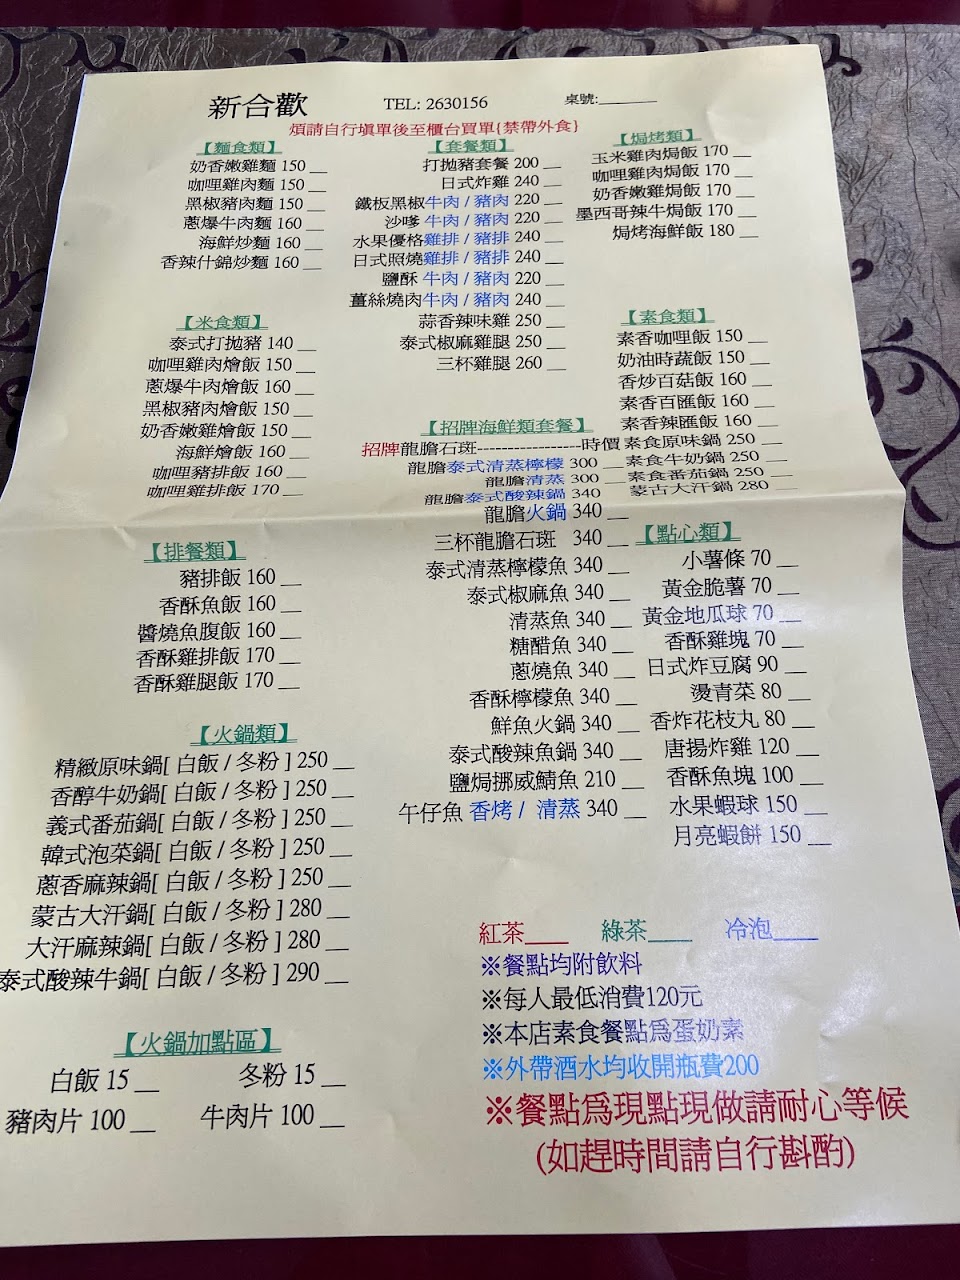 新合歡 TEL: 2630156 桌號:______
煩請自行填單後至櫃台買單{禁帶外食}
【麵食類】
奶香嫩雞麵 150 __
咖哩雞肉麵 150 __
黑椒豬肉麵 150 __
蔥爆牛肉麵 160 __
海鮮炒麵 160 __
香辣什錦炒麵 160 __
【米食類】
泰式打拋豬 140 __
咖哩雞肉燴飯 150 __
蔥爆牛肉燴飯 160 __
黑椒豬肉燴飯 150 __
奶香嫩雞燴飯 150 __
海鮮燴飯 160 __
咖哩豬排飯 160 __
咖哩雞排飯 170 __
【排餐類】
豬排飯 160 __
香酥魚飯 160 __
醬燒魚腹飯 160 __
香酥雞排飯 170 __
香酥雞腿飯 170 __
【火鍋類】
精緻原味鍋[ 白飯 / 冬粉 ] 250 __
香醇牛奶鍋[ 白飯 / 冬粉 ] 250 __
義式番茄鍋[ 白飯 / 冬粉 ] 250 __
韓式泡菜鍋[ 白飯 / 冬粉 ] 250 __
蔥香麻辣鍋[ 白飯 / 冬粉 ] 250 __
蒙古大汗鍋[ 白飯 / 冬粉 ] 280 __
大汗麻辣鍋[ 白飯 / 冬粉 ] 280 __
泰式酸辣牛鍋[ 白飯 / 冬粉 ] 290 __
【火鍋加點區】
白飯 15 __ 冬粉 15 __
豬肉片 100 __ 牛肉片 100 __
【套餐類】
打拋豬套餐 200 __
日式炸雞 240 __
鐵板黑椒牛肉 / 豬肉 220 __
沙嗲 牛肉 / 豬肉 220 __
水果優格雞排 / 豬排 240 __
日式照燒雞排 / 豬排 240 __
鹽酥 牛肉 / 豬肉 220 __
薑絲燒肉牛肉 / 豬肉 240 __
蒜香辣味雞 250 __
泰式椒麻雞腿 250 __
三杯雞腿 260 __
【招牌海鮮類套餐】
招牌龍膽石斑-----------------時價
龍膽泰式清蒸檸檬 300 __
龍膽清蒸 300 __
龍膽泰式酸辣鍋 340 __
龍膽火鍋 340 __
三杯龍膽石斑 340 __
泰式清蒸檸檬魚 340 __
泰式椒麻魚 340 __
清蒸魚 340 __
糖醋魚 340 __
蔥燒魚 340 __
香酥檸檬魚 340 __
鮮魚火鍋 340 __
泰式酸辣魚鍋 340 __
鹽焗挪威鯖魚 210 __
午仔魚 香烤 / 清蒸 340 __
【焗烤類】
玉米雞肉焗飯 170 __
咖哩雞肉焗飯 170 __
奶香嫩雞焗飯 170 __
墨西哥辣牛焗飯 170 __
焗烤海鮮飯 180 __
【素食類】
素香咖哩飯 150 __
奶油時蔬飯 150 __
香炒百菇飯 160 __
素香百匯飯 160 __
素香辣匯飯 160 __
素食原味鍋 250 __
素食牛奶鍋 250 __
素食番茄鍋 250 __
蒙古大汗鍋 280 __
【點心類】
小薯條 70 __
黃金脆薯 70 __
黃金地瓜球 70 __
香酥雞塊 70 __
日式炸豆腐 90 __
燙青菜 80 __
香炸花枝丸 80 __
唐揚炸雞 120 __
香酥魚塊 100 __
水果蝦球 150 __
月亮蝦餅 150 __
紅茶____ 綠茶____ 冷泡____
※餐點均附飲料
※每人最低消費120元
※本店素食餐點為蛋奶素
※外帶酒水均收開瓶費200
※餐點為現點現做請耐心等候
(如趕時間請自行斟酌)